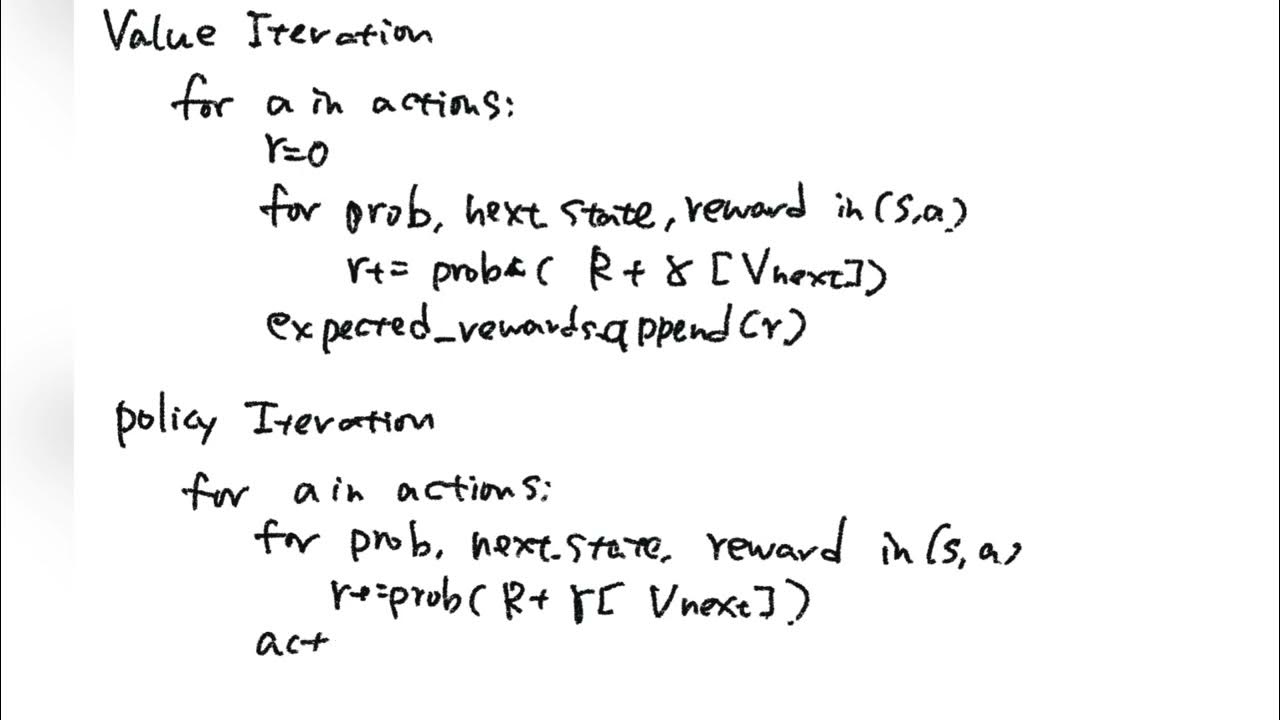 Value Iteration
for a in actions:
r=0
for prob, next_state, reward in (s,a)
r+= prob*( R + γ [Vnext])
expected_rewards.append(r)
policy Iteration
for a in actions:
for prob, next_state, reward in (s,a)
r+=prob( R+ γ[ Vnext])
act